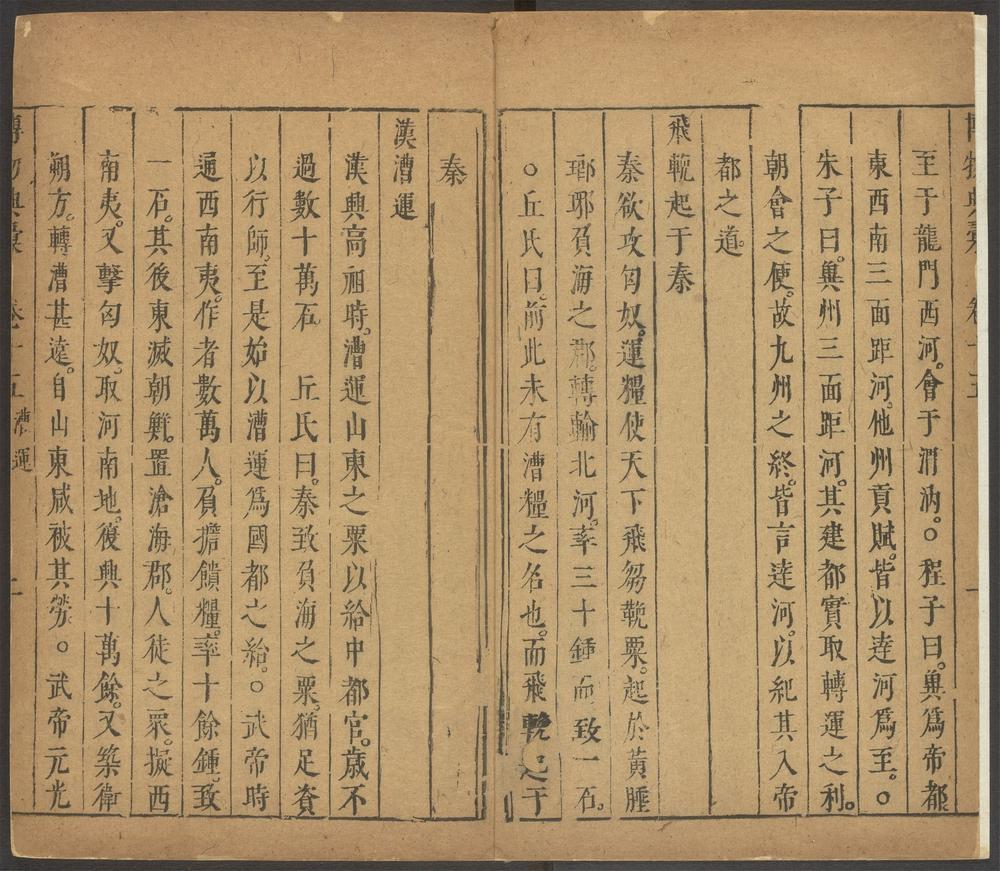 至于龍門西河。會于渭汭。○程子曰。冀為帝都
東西南三面距河。他州貢賦。皆以逹河爲至。○
朱子曰。冀州三面距河。其建都實取轉運之利。
朝會之便。故九州之終。皆言逹河。以紀其入帝
都之道。
飛輓起于秦
秦欲攻匈奴。運糧使天下飛芻輓粟。起於黃腄
瑯琊負海之郡。轉輸北河。率三十鍾而致一石。
○丘氏曰。前此未有漕糧之名也。而飛輓起于
秦
漢漕運
漢興高祖時。漕運山東之粟以給中都官。歲不
過數十萬石　丘氏曰。秦致負海之粟。猶足資
以行師。至是始以漕運爲國都之給。○武帝時
通西南夷。作者數萬人。負擔饋糧。率十餘鍾。致
一石。其後東滅朝鮮。置滄海郡。人徒之衆。擬西
南夷。又擊匈奴。取河南地。復興十萬餘。又築衛
朔方。轉漕甚遠。自山東咸被其勞。○武帝元光
漕運